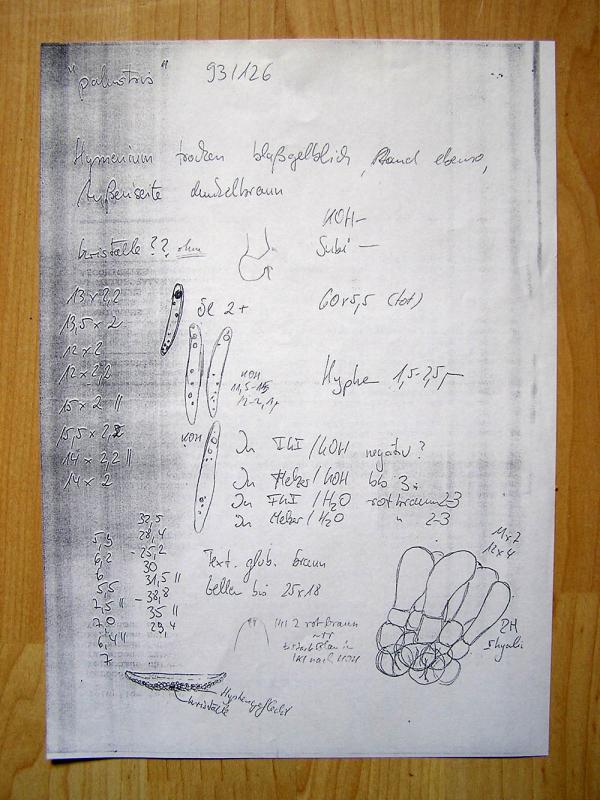 "palustris" 931126
Hymenium trocken blaßgelblich, Rand ebenso,
Außenseite dunkelbraun
KOH-
Kristalle ??, ohne Subi —
13 x 2,2
Öl 2+ 60 x 5,5 (tot)
13,5 x 2
12 x 2
12 x 2,2
KOH
11,5-15
/2-2,1µ
Hyphen 1,5-2,5µ
15 x 2 ||
15,5 x 2,2
14 x 2,2 ||
14 x 2
KOH
In IKI/KOH negativ?
In Melzer/KOH bb 3
In IKI/H2O rotbraun 2-3
In Melzer/H2O " 2-3
32,5
5,5 28,4
6,2 - 25,2
6 30
5,5 31,5 ||
7,5 || - 38,8
7,0 35 ||
6,4 || 29,4
7
Text. glob. braun
Zellen bis 25x18
11 x 7
12 x 4
IKI 2 rotbraun
IKI nach KOH
Hyphengeflecht
Kristalle